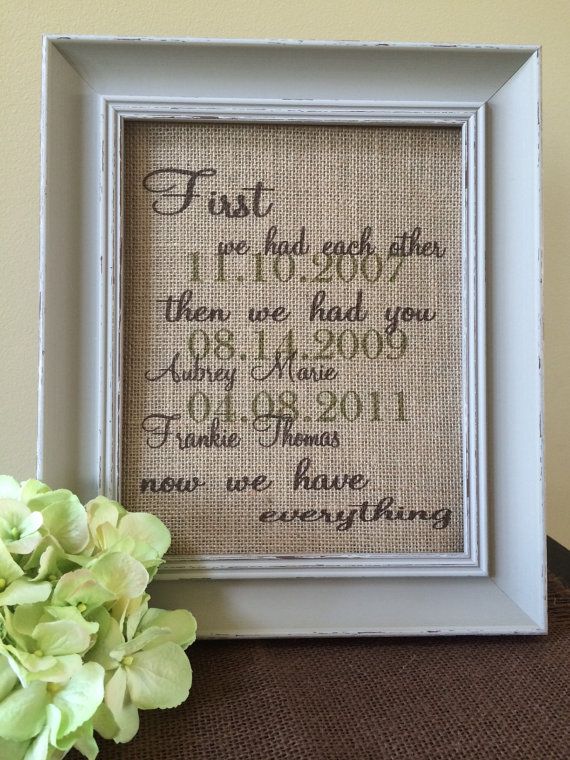 First
we had each other
11.10.2007
then we had you
08.14.2009
Aubrey Marie
04.08.2011
Frankie Thomas
now we have
everything